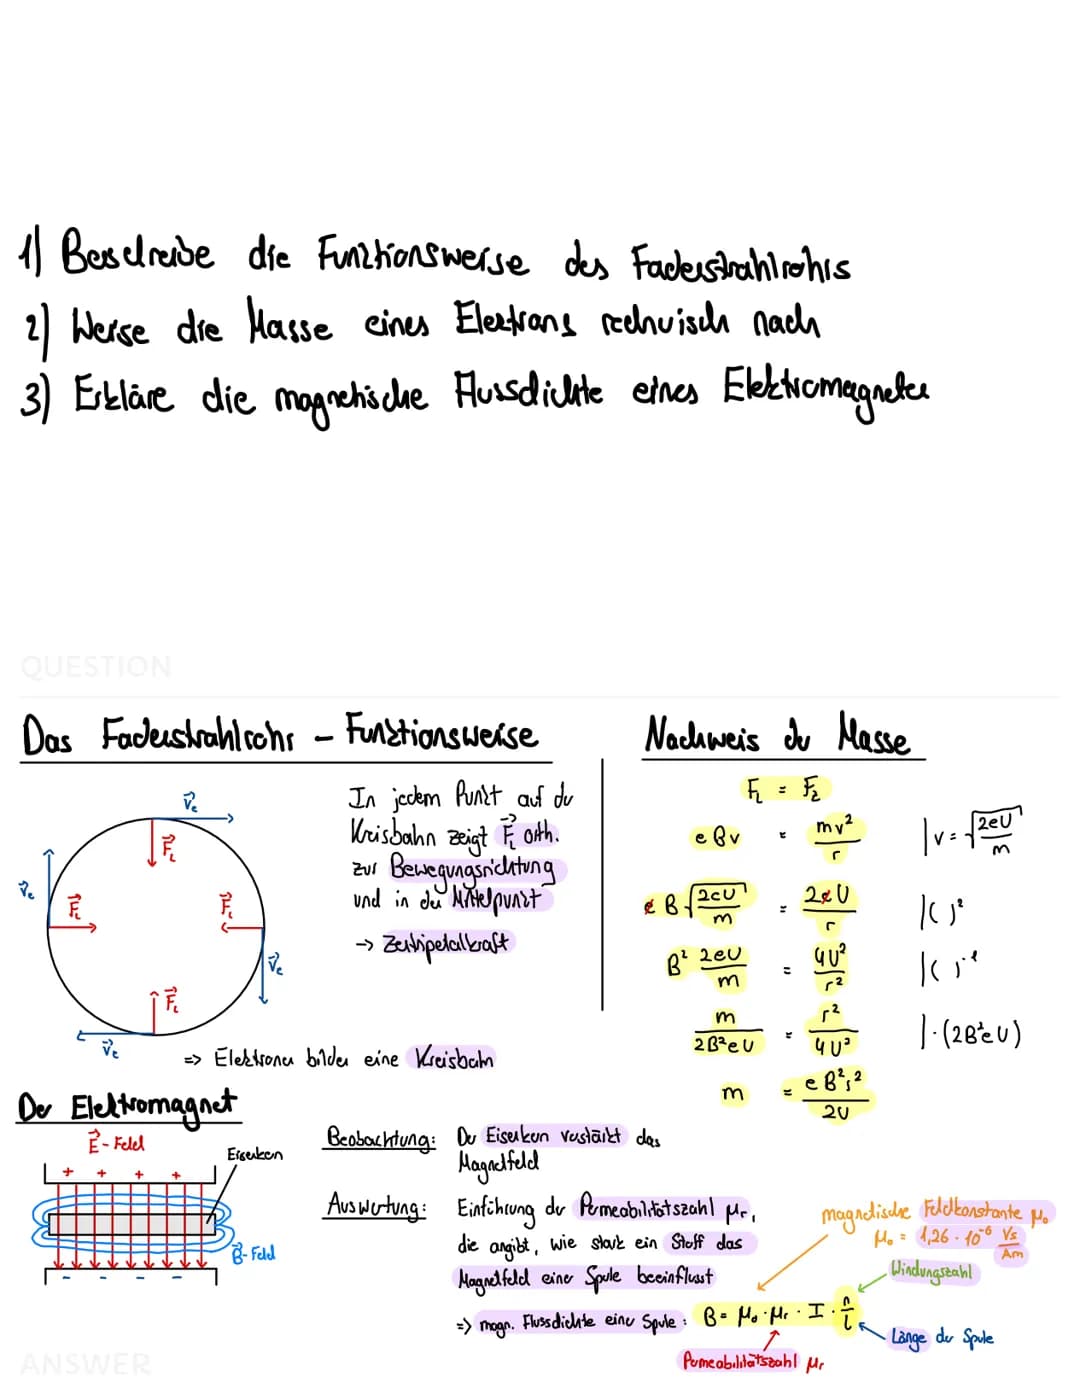 1) Beschreibe die Funktionsweise des Fadenstrahlrohrs
2) Weise die Masse eines Elektrons rechnerisch nach
3) Erkläre die magnetische Flussdichte eines Elektromagneten
QUESTION
Das Fadenstrahlrohr – Funktionsweise
In jedem Punkt auf der
Kreisbahn zeigt F⃗_L orth.
zur Bewegungsrichtung
und in den Mittelpunkt
→ Zentripetalkraft
v⃗_e
F⃗_L
v⃗_e
F⃗_L
F⃗_L
v⃗_e
F⃗_L
v⃗_e
=> Elektronen bilden eine Kreisbahn
Nachweis der Masse
F_L = F_Z
eBv = mv²/r | v = √(2eU/m)
eB√(2eU/m) = 2eU/r | ( )²
B² 2eU/m = 4U²/r² | ( )⁻¹
m/(2B²eU) = r²/(4U²) | · (2B²eU)
m = eB²r²/(2U)
Der Elektromagnet
E⃗ - Feld
Eisenkern
+ + + +
B⃗ - Feld
- - - -
Beobachtung: Der Eisenkern verstärkt das
Magnetfeld
Auswertung: Einführung der Permeabilitätszahl μr,
die angibt, wie stark ein Stoff das
Magnetfeld einer Spule beeinflusst
=> magn. Flussdichte einer Spule: B = μ₀ · μr · I · n/l
magnetische Feldkonstante μ₀
μ₀ = 1,26 · 10⁻⁶ Vs/Am
Windungszahl
Länge der Spule
Permeabilitätszahl μr
ANSWER